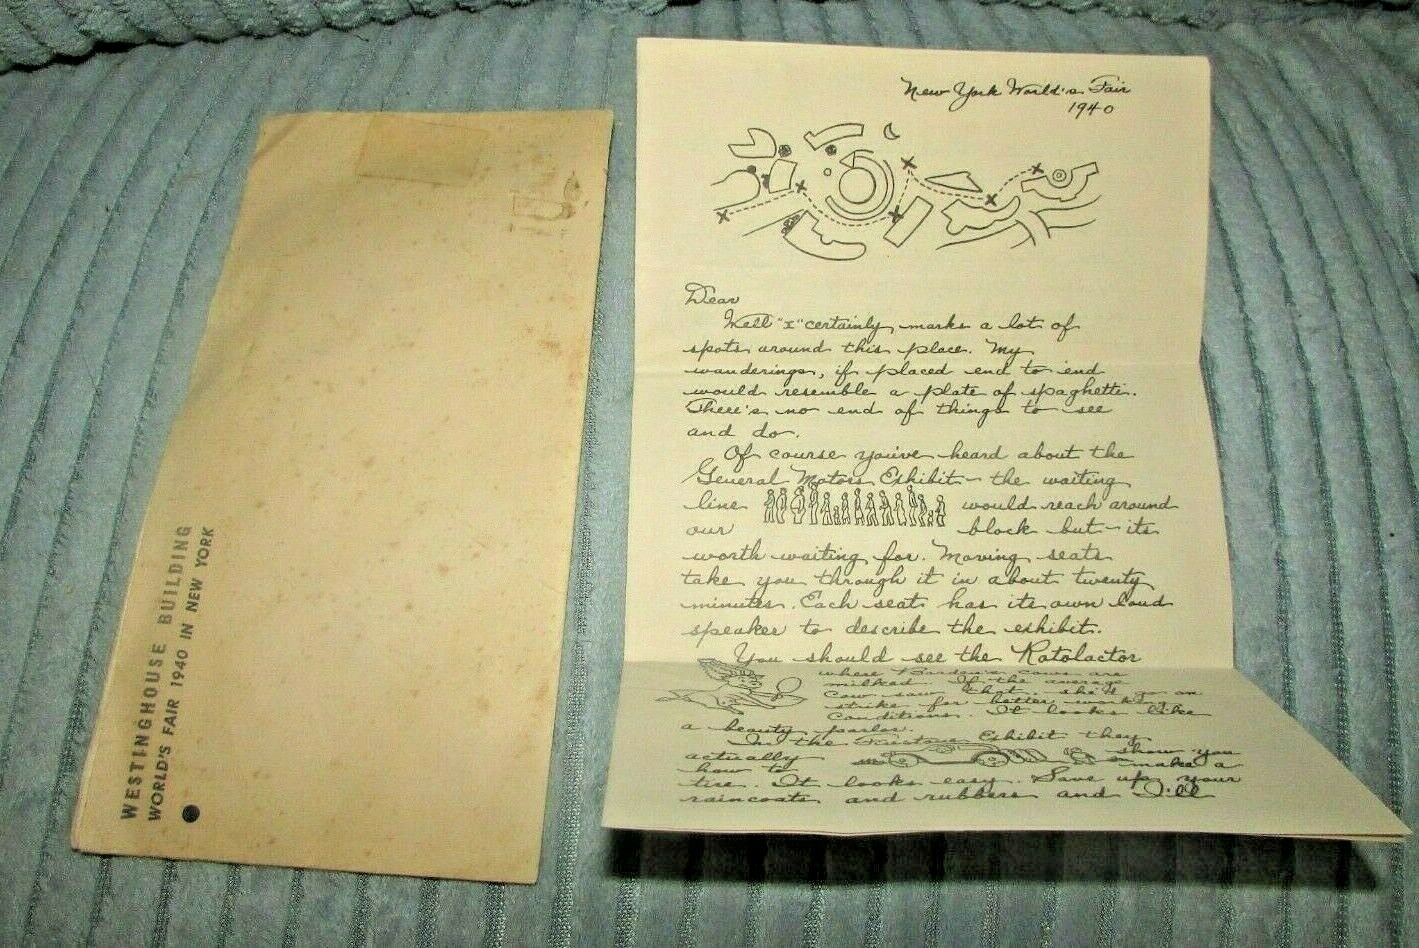 WESTINGHOUSE BUILDING
WORLD'S FAIR 1940 IN NEW YORK
New York World's Fair
1940
Dear
Well "I" certainly marks a lot of
spots around this place. My
wanderings, if placed end to end
would resemble a plate of spaghetti.
There's no end of things to see
and do.
Of course you've heard about the
General Motors Exhibit - the waiting
line would reach around
our block but its
worth waiting for. Moving seats
take you through it in about twenty
minutes. Each seat has its own loud
speaker to describe the exhibit.
You should see the Rotolactor
where Borden's cows are
milked. If the average
cow saw that she'd go on
strike for better working
conditions. It looks like
a beauty parlor.
In the Firestone Exhibit they
actually show you
how to make a
tire. It looks easy. Save up your
raincoats and rubbers and I'll